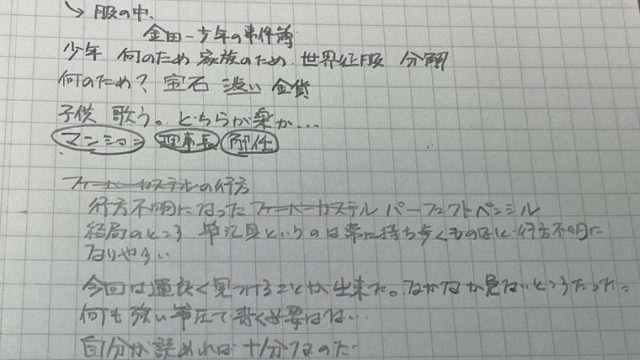 ↳ 服の中、
金田一少年の事件簿
少年 何のため 家族のため 世界征服 分解
何のため? 宝石 渋い 金貨
子供 歌う。どちらが楽か…
マンション 理事長 解任
フィーバーカステルの行方
行方不明になったフィーバーカステル パーフェクトペンシル
結局のところ 筆記具というのは常に持ち歩くものほど行方不明に
なりやすい
今回は運良く見つけることが出来た。なかなか危ないところだった。
何も強い筆圧で書く必要はない…
自分が読めれば十分なのだ